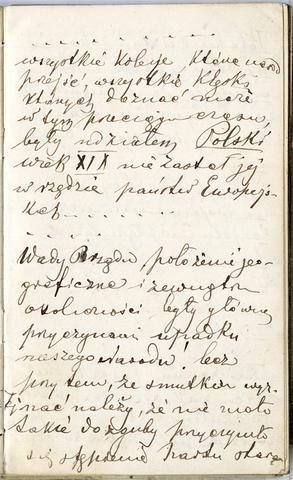 . . . . . . . . . .
wszystkie koleje które naród
przejść, wszystkie klęski
których doznać może
w tym przeciągu czasu,
były udziałem Polski
wiek XIX nie zastał jej
w rzędzie państw Europejs-
kich . . . . . . .
. . . . .
Wady Rządu położenie jeo-
graficzne i zewnętrzne
okoliczności były główną
przyczynami upadku
naszego Narodu! bez
przytem, że smutkiem wyz-
nać należy, że nie mało
także do zguby przyczyniło
się stępienie hartu